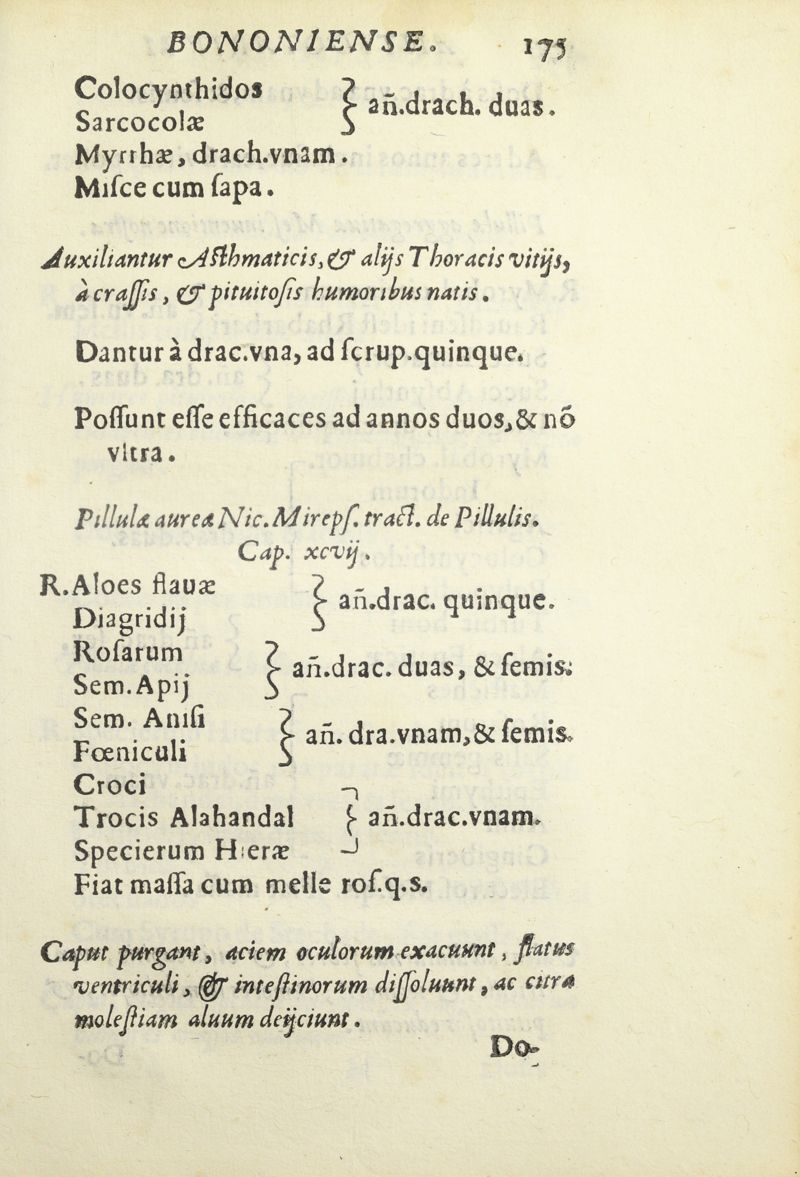 BONONIENSE. 175
Colocynthidos
Sarcocolæ } añ.drach. duas.
Myrrhæ, drach.vnam.
Miſce cum ſapa.
Auxiliantur Aſthmaticis, & alijs Thoracis vitijs,
à craſſis, & pituitoſis humoribus natis.
Dantur à drac.vna, ad ſcrup.quinque.
Poſſunt eſſe efficaces ad annos duos, & nõ
vltra.
Pillulæ aureæ Nic. Mirepſ. tract. de Pillulis.
Cap. xcvij.
R. Aloes flauæ
Diagridij } añ.drac. quinque.
Roſarum
Sem. Apij } añ.drac. duas, & ſemis.
Sem. Aniſi
Fœniculi } añ. dra.vnam, & ſemis.
Croci
Trocis Alahandal } añ.drac.vnam.
Specierum Hieræ
Fiat maſſa cum melle roſ.q.s.
Caput purgant, aciem oculorum exacuunt, flatus
ventriculi, & inteſtinorum diſſoluunt, ac citra
moleſtiam aluum deijciunt.
Do-